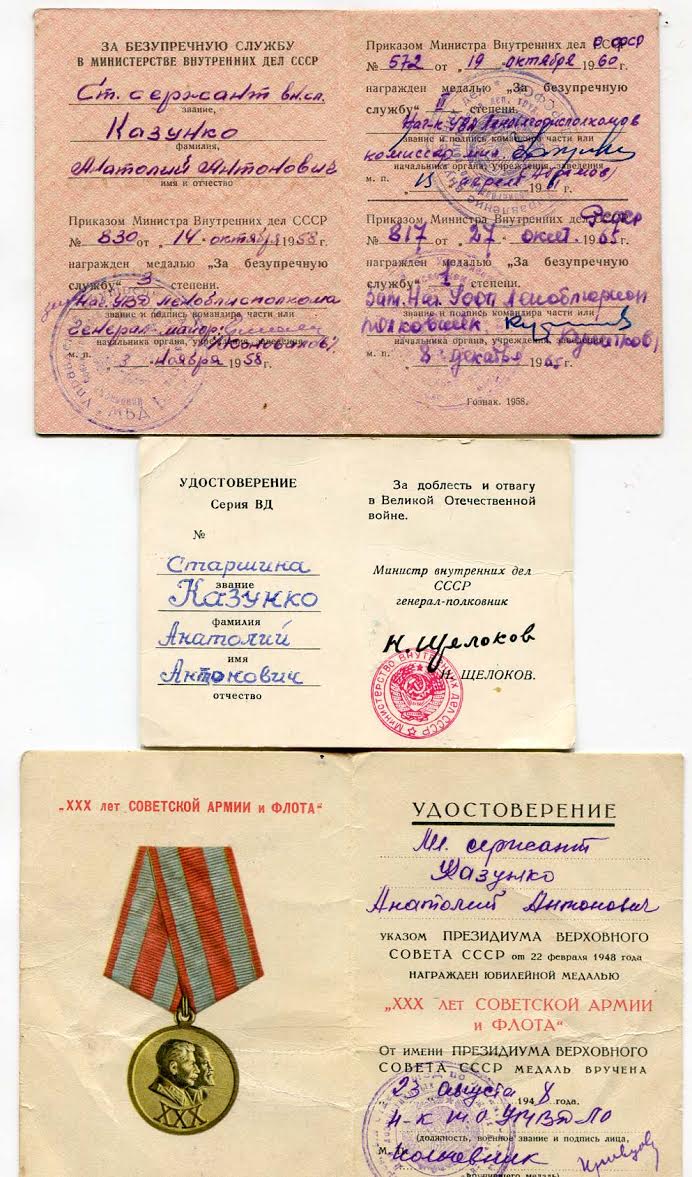 ЗА БЕЗУПРЕЧНУЮ СЛУЖБУ
В МИНИСТЕРСТВЕ ВНУТРЕННИХ ДЕЛ СССР
Ст. сержант вн. сл.
звание,
Казунко
фамилия,
Анатолий Антонович
имя и отчество
Приказом Министра Внутренних дел СССР
№ 830 от „14 октября 1958 г.
награжден медалью „За безупречную
службу“ 3 степени.
Нач. УВД Леноблисполкома
звание и подпись командира части или
генерал-майор
начальника органа, учреждения, заведения
м. п. „3 ноября 1958 г.
Приказом Министра Внутренних дел РСФСР
№ 572 от „19 октября 1960 г.
награжден медалью „За безупречную
службу“ II степени.
звание и подпись командира части или
комиссар мил.
начальника органа, учреждения, заведения
м. п.
Приказом Министра Внутренних дел
№ 817 от „27 окт 1965 г.
награжден медалью „За безупречную
службу“ 1 степени.
Зам. Нач.
звание и подпись командира части или
полковник
начальника органа, учреждения, заведения
м. п. „8 декабря 1965 г.
Гознак. 1958.
УДОСТОВЕРЕНИЕ
Серия ВД
№
Старшина
звание
Казунко
фамилия
Анатолий
имя
Антонович
отчество
За доблесть и отвагу
в Великой Отечественной
войне.
Министр внутренних дел
СССР
генерал-полковник
Н. Щелоков
Н. ЩЕЛОКОВ.
МИНИСТЕРСТВО ВНУТРЕННИХ ДЕЛ СССР
„XXX лет СОВЕТСКОЙ АРМИИ и ФЛОТА“
XXX
УДОСТОВЕРЕНИЕ
Мл. сержант
Казунко
Анатолий Антонович
УКАЗОМ ПРЕЗИДИУМА ВЕРХОВНОГО
СОВЕТА СССР от 22 февраля 1948 года
НАГРАЖДЕН ЮБИЛЕЙНОЙ МЕДАЛЬЮ
„XXX ЛЕТ СОВЕТСКОЙ АРМИИ
и ФЛОТА“
От имени ПРЕЗИДИУМА ВЕРХОВНОГО
СОВЕТА СССР МЕДАЛЬ ВРУЧЕНА
23 августа 1948 года.
Н-к
(должность, военное звание и подпись лица,
М. П. полковник
вручившего медаль)